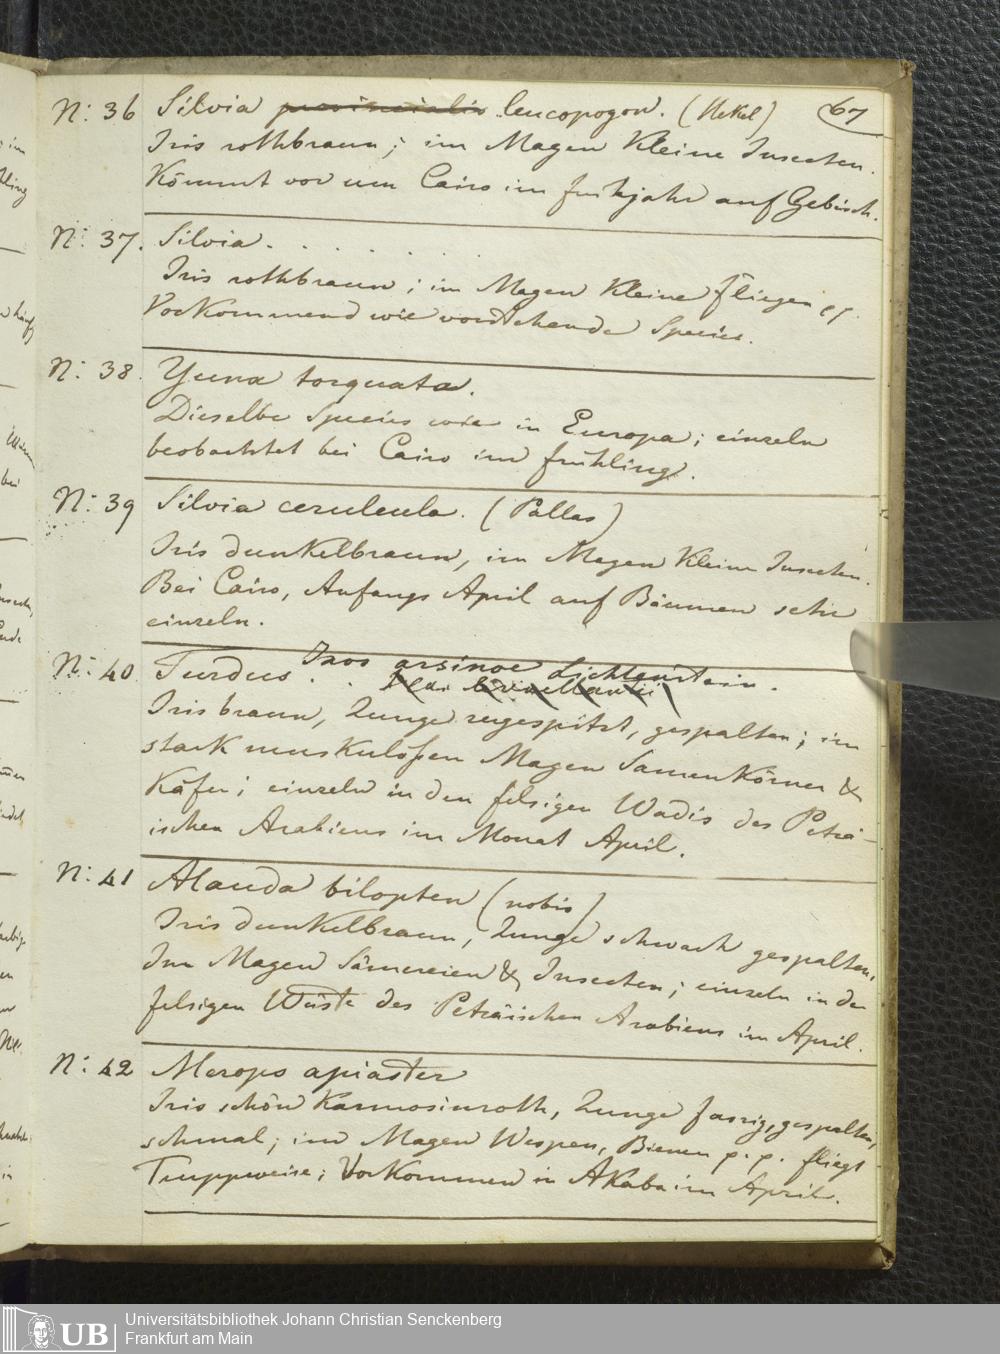 67
N: 36 Silvia provincialis leucopogon. (Hekel)
Iris rothbraun; im Magen Kleine Insecten.
Kömmt vor um Cairo im frühjahr auf Gebüsch.
N: 37. Silvia . . . . . .
Iris rothbraun; im Magen Kleine fliegen pp.
Vorkommend wie vorstehende Species.
N: 38. Yunx torquata.
Dieselbe Species wie in Europa; einzeln
beobachtet bei Cairo im frühling.
N: 39 Silvia ceruleula. (Pallas)
Iris dunkelbraun, im Magen Kleine Insecten.
Bei Cairo, Anfangs April auf Bäumen sehr
einzeln.
Ixos arsinoe Lichtenstein.
N: 40 Turdus . .
Iris braun, Zunge zugespitzt, gespalten; im
stark muskulößen Magen Samenkörner &
Käfer; einzeln in den felsigen Wadis des Peträ-
ischen Arabiens im Monat April.
N: 41 Alauda bilopten (nobis)
Iris dunkelbraun, Zunge schwach gespalten,
Im Magen Sämereien & Insecten; einzeln in der
felsigen Wüste des Peträischen Arabiens im April.
N: 42 Merops apiaster
Iris schön Karmosinroth, Zunge fasrig, gespalten,
schmal; im Magen Wespen, Bienen p. p. fliegt
Truppweise; Vorkommen in Akaba im April.
UB Universitätsbibliothek Johann Christian Senckenberg
Frankfurt am Main